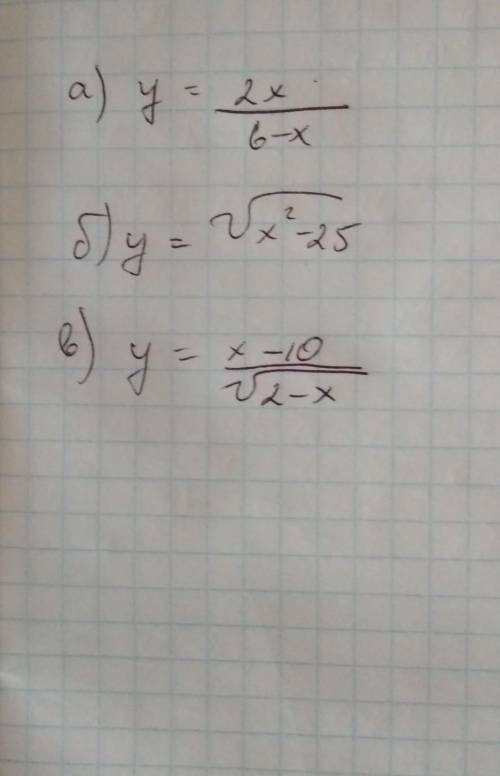 а) y = 2x / 6-x
б) y = √x²-25
в) y = x-10 / √2-x